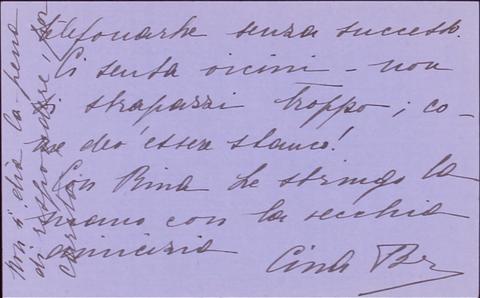 telefonarLe senza successo.
Ci senta vicini - non
strapazzi troppo; co-
me dev'esser stanco!
Con Rina Le stringo la
mano con la vecchia
amicizia
Non si dia la pena
di rispondere, per
carità!